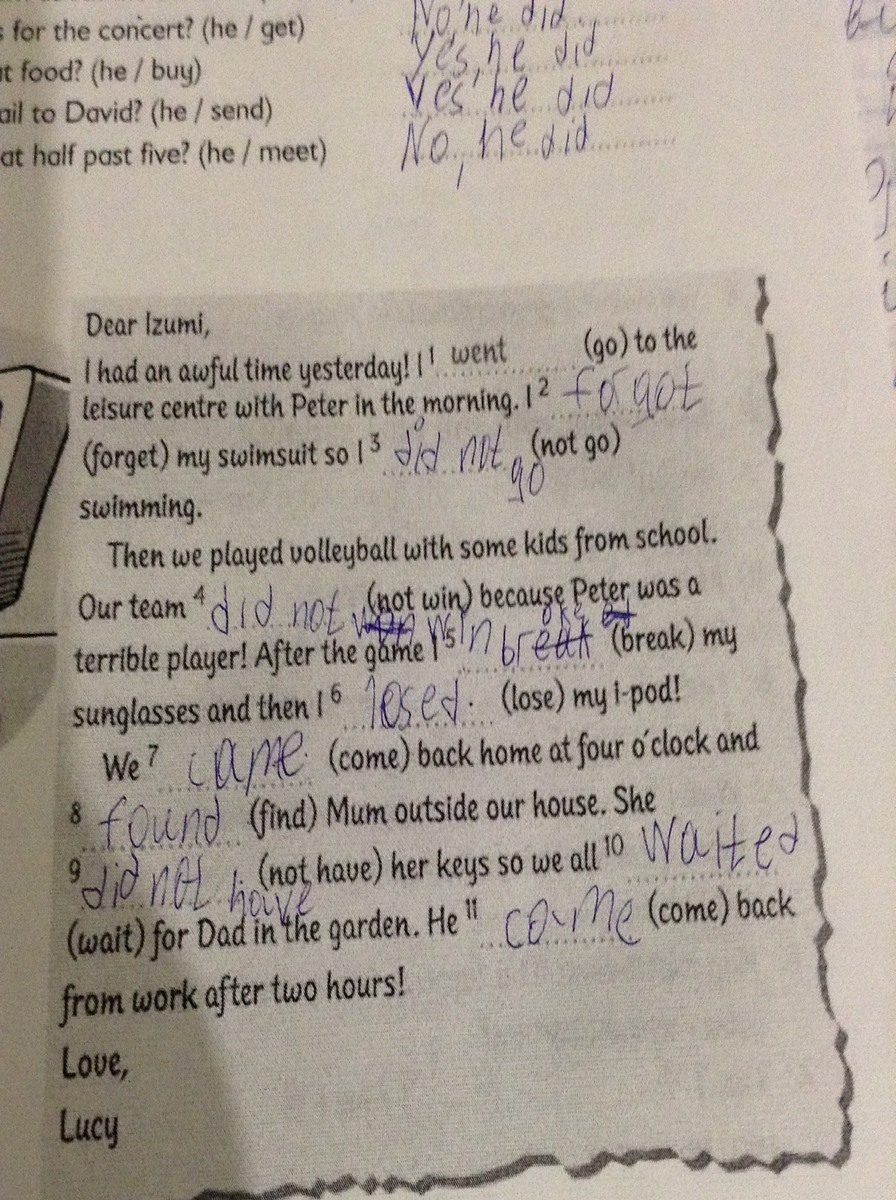 s for the concert? (he / get) No, he did
t food? (he / buy) Yes, he did
ail to David? (he / send) Yes he did
at half past five? (he / meet) No, he did
Dear Izumi,
I had an awful time yesterday! I 1 went (go) to the
leisure centre with Peter in the morning. I 2 forgot
(forget) my swimsuit so I 3 did not go (not go)
swimming.
Then we played volleyball with some kids from school.
Our team 4 did not win (not win) because Peter was a
terrible player! After the game I 5 (break) my
sunglasses and then I 6 losed. (lose) my i-pod!
We 7 came (come) back home at four o'clock and
8 found (find) Mum outside our house. She
9 did not have (not have) her keys so we all 10 waited
(wait) for Dad in the garden. He 11 came (come) back
from work after two hours!
Love,
Lucy